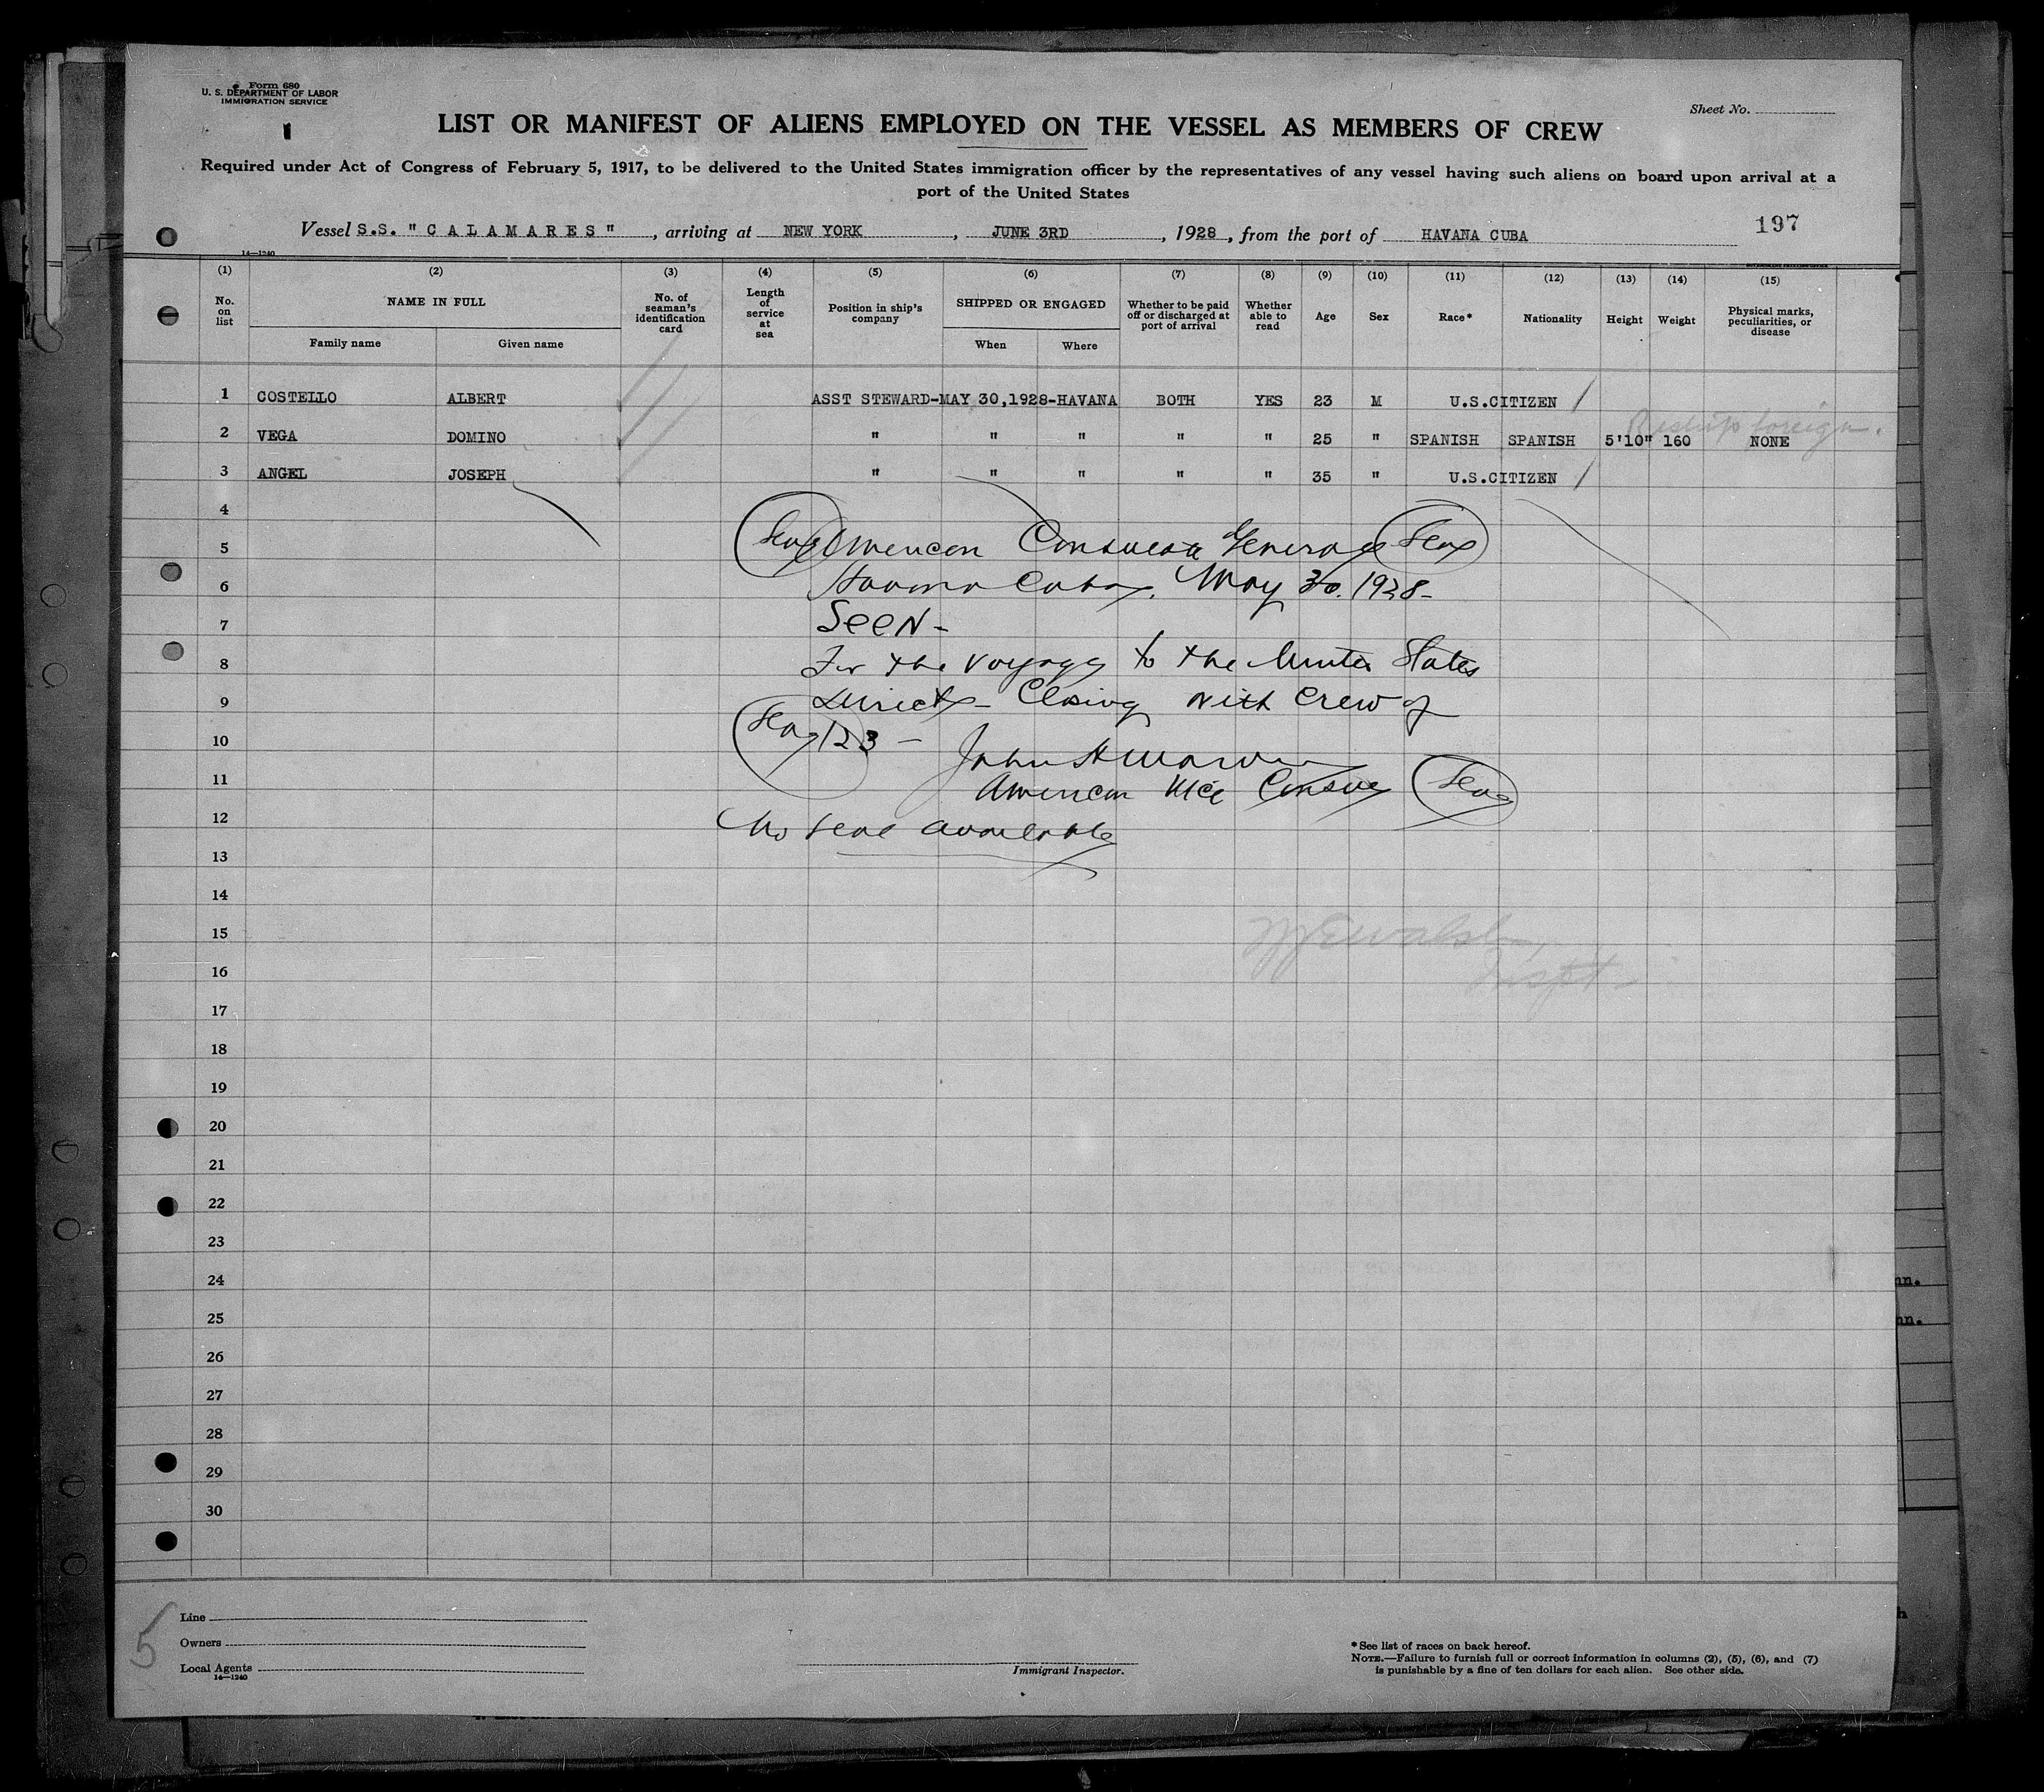 Form 680
U. S. DEPARTMENT OF LABOR
IMMIGRATION SERVICE
Sheet No.
LIST OR MANIFEST OF ALIENS EMPLOYED ON THE VESSEL AS MEMBERS OF CREW
Required under Act of Congress of February 5, 1917, to be delivered to the United States immigration officer by the representatives of any vessel having such aliens on board upon arrival at a
port of the United States
Vessel S.S. "CALAMARES", arriving at NEW YORK, JUNE 3RD, 1928, from the port of HAVANA CUBA
197
14—1240
(1) (2) (3) (4) (5) (6) (7) (8) (9) (10) (11) (12) (13) (14) (15)
No. on list
NAME IN FULL
Family name
Given name
No. of seaman's identification card
Length of service at sea
Position in ship's company
SHIPPED OR ENGAGED
When
Where
Whether to be paid off or discharged at port of arrival
Whether able to read
Age
Sex
Race*
Nationality
Height
Weight
Physical marks, peculiarities, or disease
1 COSTELLO ALBERT ASST STEWARD-MAY 30,1928-HAVANA BOTH YES 23 M U.S.CITIZEN
Reship foreign.
2 VEGA DOMINO " " " " " 25 " SPANISH SPANISH 5'10" 160 NONE
3 ANGEL JOSEPH " " " " " 35 " U.S.CITIZEN
4
5 Seal American Consulate General Seal
6 Havana Cuba. May 30. 1928-
7 Seen-
8 For the voyage to the United States
9 Direct- Closing with crew of
10 Seal 123-
John H
11 American Vice Consul Seal
12 No seal available
13
14
15 Walsh
16 Inspt-
17
18
19
20
21
22
23
24
25
26
27
28
29
30
5
Line
Owners
Local Agents
14—1240
Immigrant Inspector.
*See list of races on back hereof.
NOTE.—Failure to furnish full or correct information in columns (2), (5), (6), and (7)
is punishable by a fine of ten dollars for each alien. See other side.